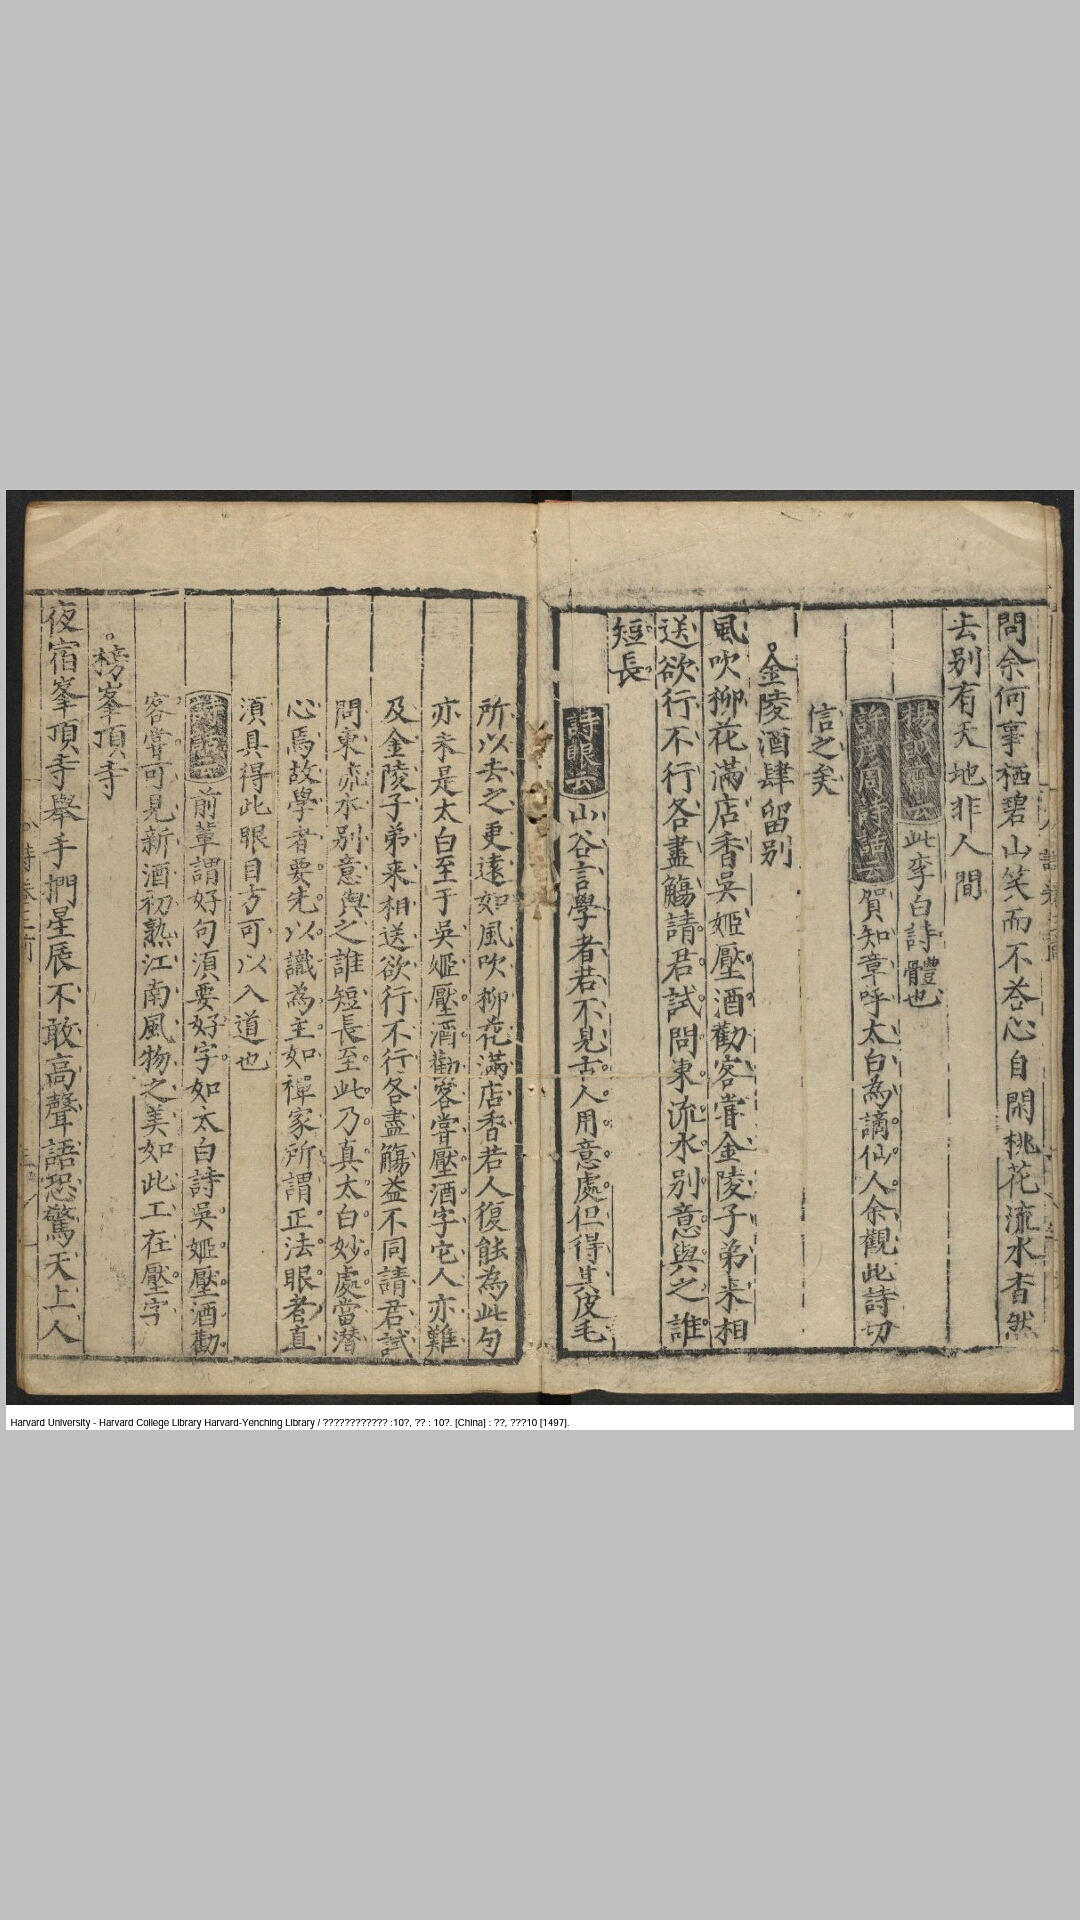 問余何事栖碧山笑而不荅心自閑桃花流水杳然
去別有天地非人間
楊誠齋云此李白詩體也
許彥周詩話云賀知章呼太白為謫仙人余觀此詩切
信之矣
金陵酒肆留別
風吹柳花滿店香吳姬壓酒勸客甞金陵子弟来相
送欲行不行各盡觴請君試問東流水別意與之誰
短長
詩眼云山谷言學者若不見古人用意處但得其皮毛
所以去之更遠如風吹柳花滿店香若人復能為此句
亦未是太白至于吳姬壓酒勸客甞壓酒字它人亦難
及金陵子弟来相送欲行不行各盡觴益不同請君試
問東流水別意與之誰短長至此乃真太白妙處當潜
心焉故學者要先以識為主如禪家所謂正法眼者直
湏具得此眼目方可以入道也
詩話云前輩謂好句湏要好字如太白詩吳姬壓酒勸
客甞可見新酒初熟江南風物之美如此工在壓字
榜峯頂寺
夜宿峯頂寺舉手捫星辰不敢高聲語恐驚天上人
Harvard University - Harvard College Library Harvard-Yenching Library / ???????????? :10?, ?? : 10?. [China] : ??, ???10 [1497].